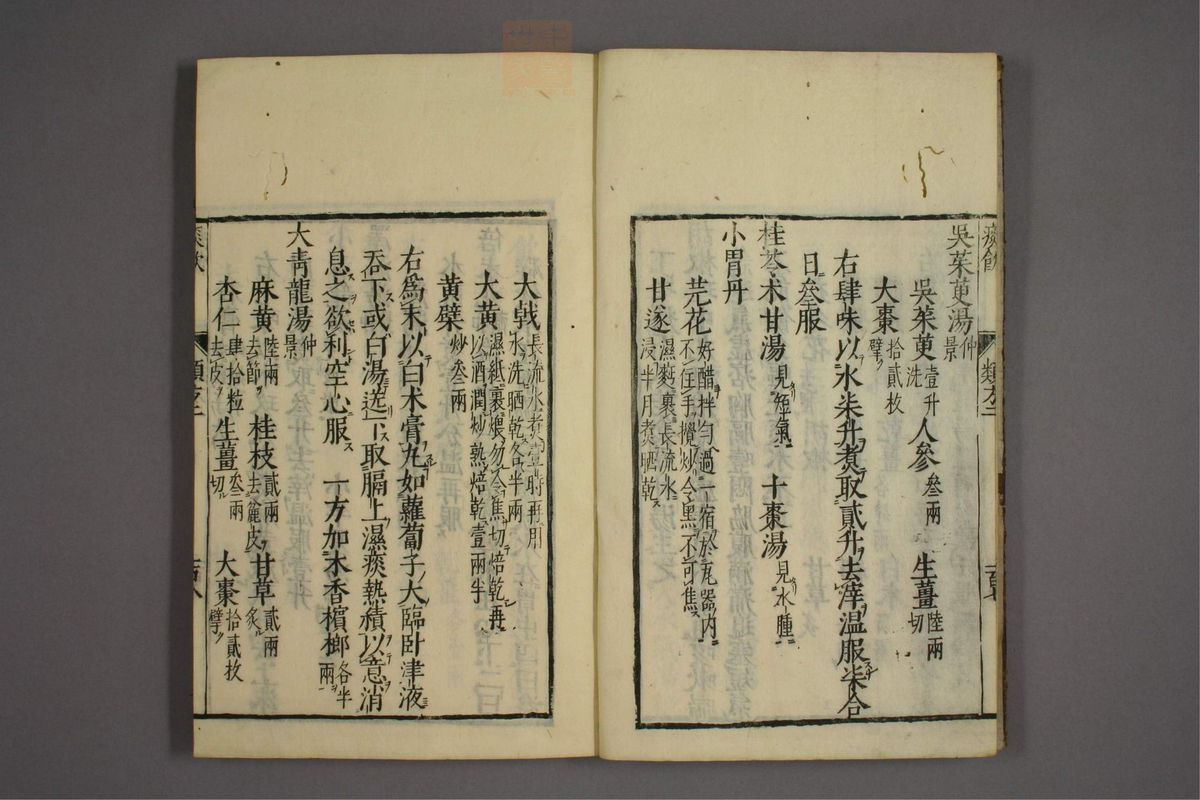 吳茱萸湯仲景
吳茱萸壹升洗 人參叄兩 生薑陸兩切
大棗拾貳枚擘
右肆味以水柒升煮取貳升去滓温服柒合
日叄服
桂苓术甘湯見短氣 十棗湯見水腫
小胃丹
芫花好醋拌勻過一宿於瓦器內不住手攪炒令黑不可焦
甘遂濕麪裹長流水浸半月煮晒乾
大戟長流水煮壹時再用水洗晒乾各半兩
大黃濕紙裹煨勿令焦切焙乾再以酒潤炒熟焙乾壹兩半
黃蘗炒叄兩
右為末以白术膏丸如蘿蔔子大臨卧津液
吞下或白湯送下取膈上濕痰熱積以意消
息之欲利空心服 一方加木香檳榔各半兩
大青龍湯仲景
麻黃陸兩去節 桂枝貳兩去麄皮 甘草貳兩炙
杏仁肆拾粒去皮 生薑叄兩切 大棗拾貳枚擘
痰飲
類方